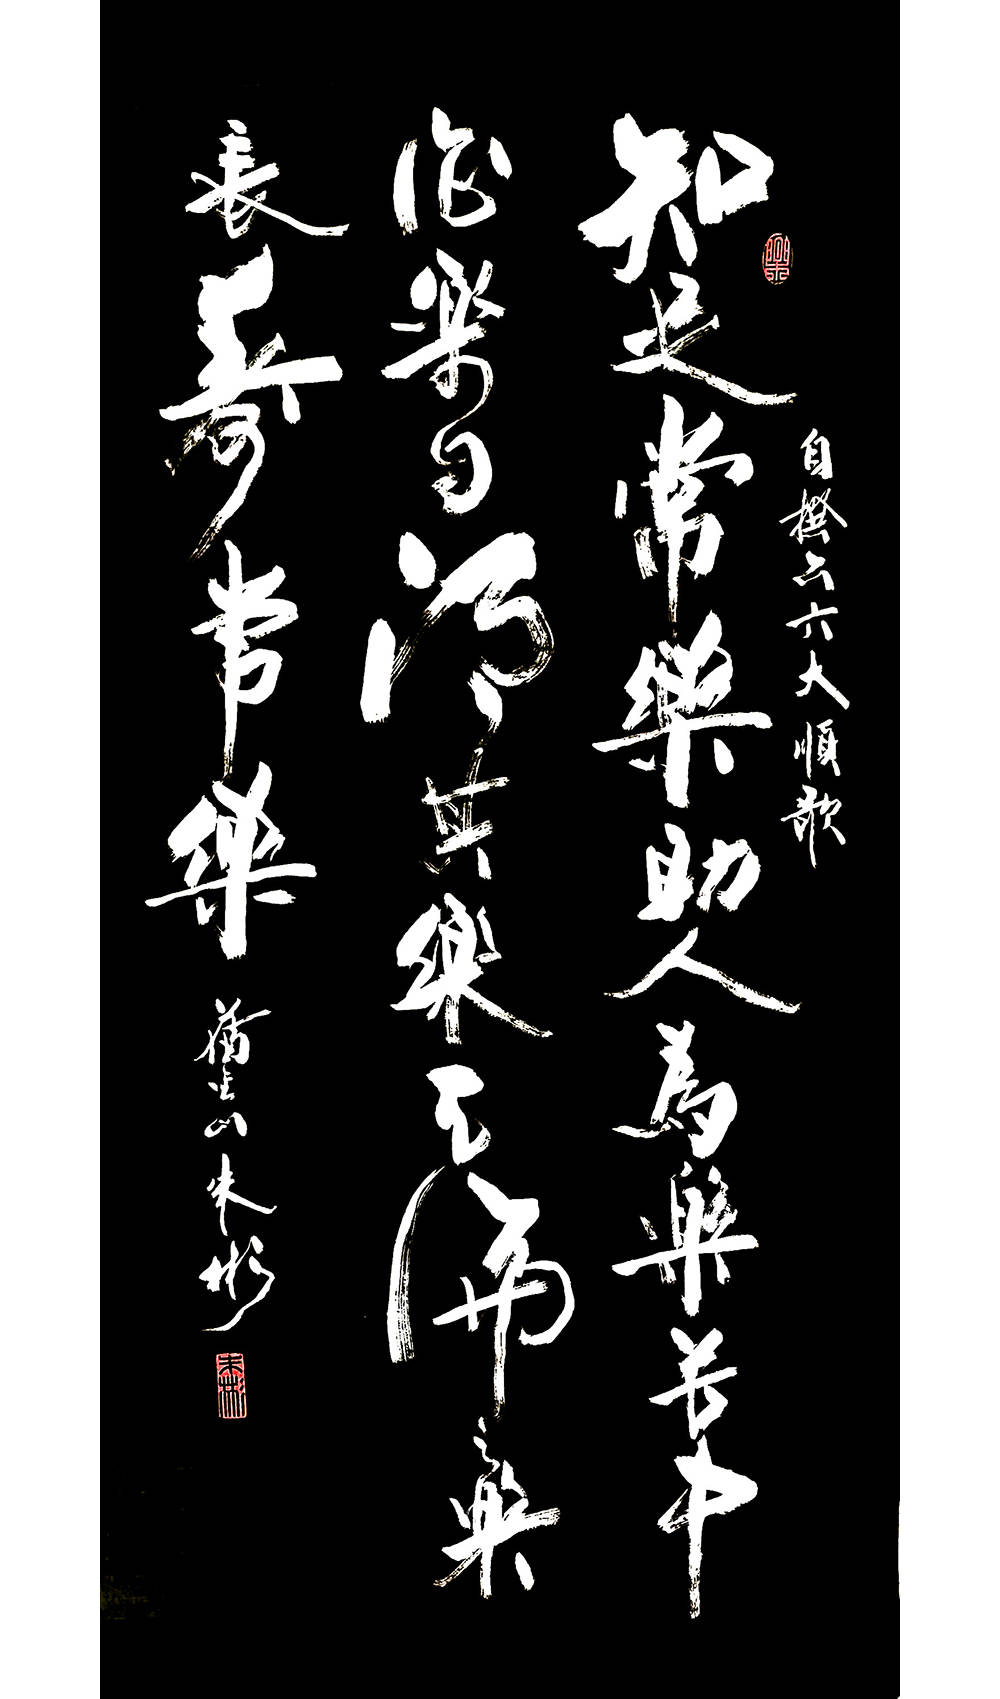 自撰六六大順歌
知足常樂助人為樂苦中
作樂自得其樂天倫之樂
長壽常樂
山朱彬
朱彬